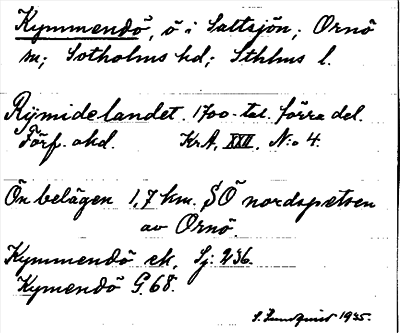 Kymmendö, ö i Saltsjön; Ornö
sn; Sotholms hd; Sthlms l.
Kÿmidelandet. 1700-tal. förra del.
Förf. okd. KrA, XXII, N:o 4.
Ön belägen 1,7 km. SÖ nordspetsen
av Ornö.
Kymmendö ek. Sj: 236.
Kymendö G. 68.
S. Lundquist 1935.